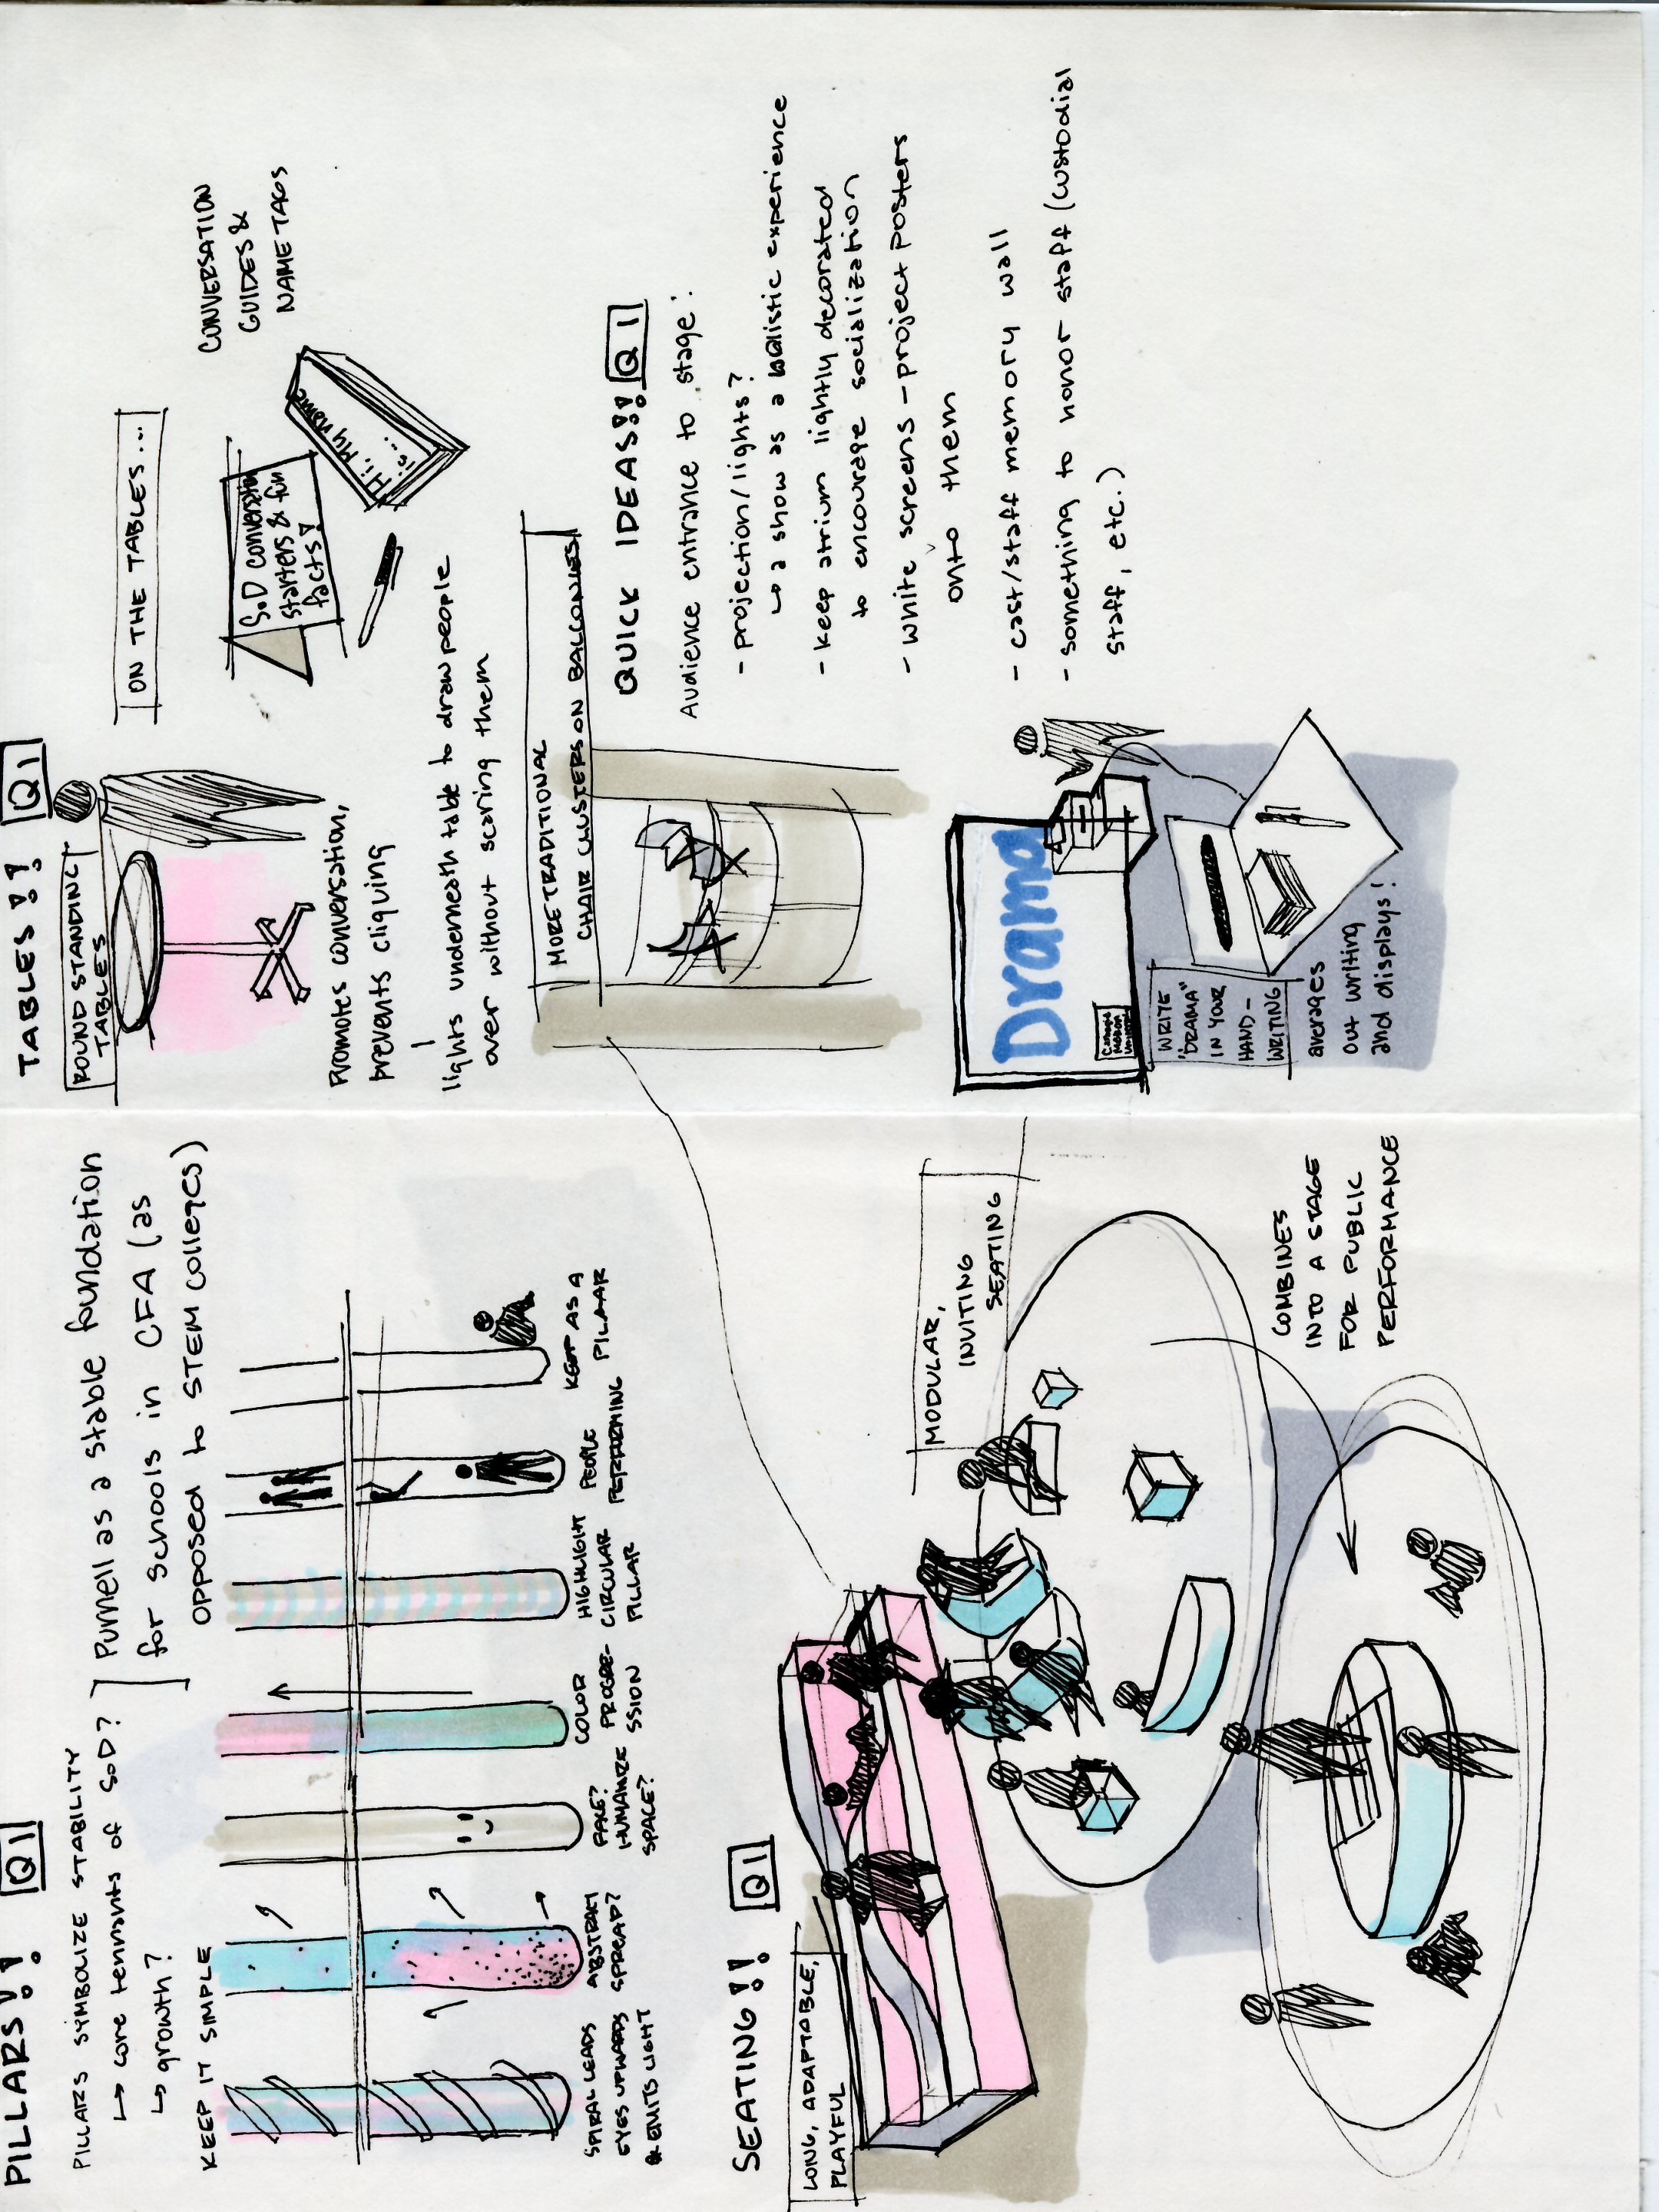 PILLARS!! Q1
PILLARS SYMBOLIZE STABILITY
↳ core tennants of SoD?
↳ growth?
Purnell as a stable foundation
for schools in CFA (as
opposed to STEM colleges)
KEEP IT SIMPLE
SPIRAL LEADS
EYES UPWARDS
& EMITS LIGHT
ABSTRACT
SPREAD?
FACE?
HUMANIZE
SPACE?
COLOR
PROGRE-
SSION
HIGHLIGHT
CIRCULAR
PILLAR
PEOPLE
PERFORMING
KEEP AS A
PILAAR
SEATING!! Q1
LONG, ADAPTABLE,
PLAYFUL
MODULAR,
INVITING
SEATING
COMBINES
INTO A STAGE
FOR PUBLIC
PERFORMANCE
TABLES!! Q1
ROUND STANDING
TABLES
Promotes conversation,
prevents cliquing
lights underneath table to draw people
over without scaring them
ON THE TABLES...
SoD conversation
starters & fun
facts!
Hi, My name
is...
CONVERSATION
GUIDES &
NAME TAGS
MORE TRADITIONAL
CHAIR CLUSTERS ON BALCONIES
QUICK IDEAS!! Q1
Audience entrance to stage:
- projection/lights?
↳ a show as a holistic experience
- keep atrium lightly decorated
to encourage socialization
- white screens - project posters
onto them
- cast/staff memory wall
- something to honor staff (custodial
staff, etc.)
Drama
Carnegie
Mellon
University
WRITE
"DRAMA"
IN YOUR
HAND-
WRITING
averages
out writing
and displays!